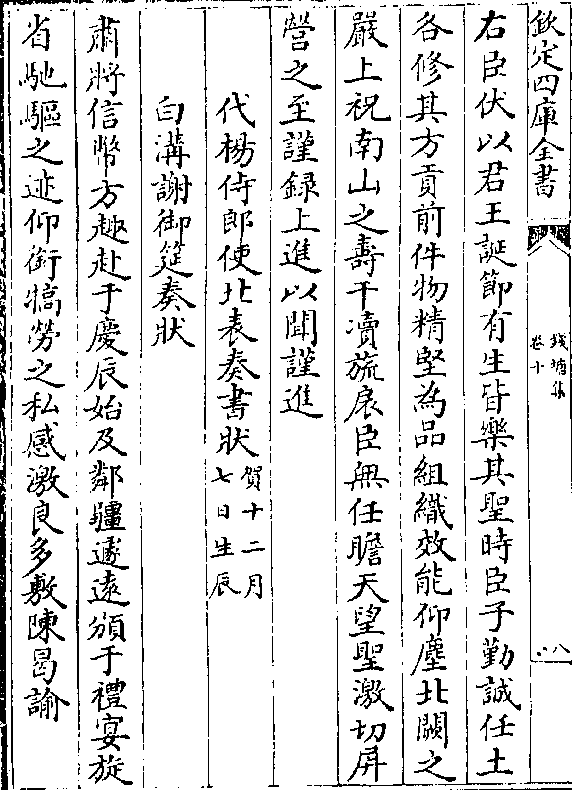 欽定四庫全書
錢塘集
卷十
八
右臣伏以君王誕節有生皆樂其聖時臣子勤誠任土
各修其方貢前件物精堅為品組織效能仰塵北闕之
嚴上祝南山之壽干凟旒扆臣無任瞻天望聖激切屏
營之至謹録上進以聞謹進
代楊侍郎使北表奏書狀賀十二月
七日生辰
白溝謝御筵奏狀
肅將信幣方趣赴于慶辰始及鄰疆遽逺頒于禮宴旋
省馳驅之迹仰銜犒勞之私感激良多敷陳曷諭